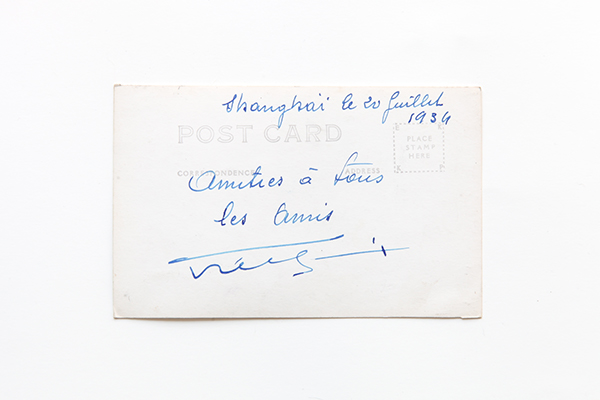 Shanghai le 20 Juillet
1934
POST CARD
PLACE
STAMP
HERE
CORRESPONDENCE
ADDRESS
Amities à tous
les Amis